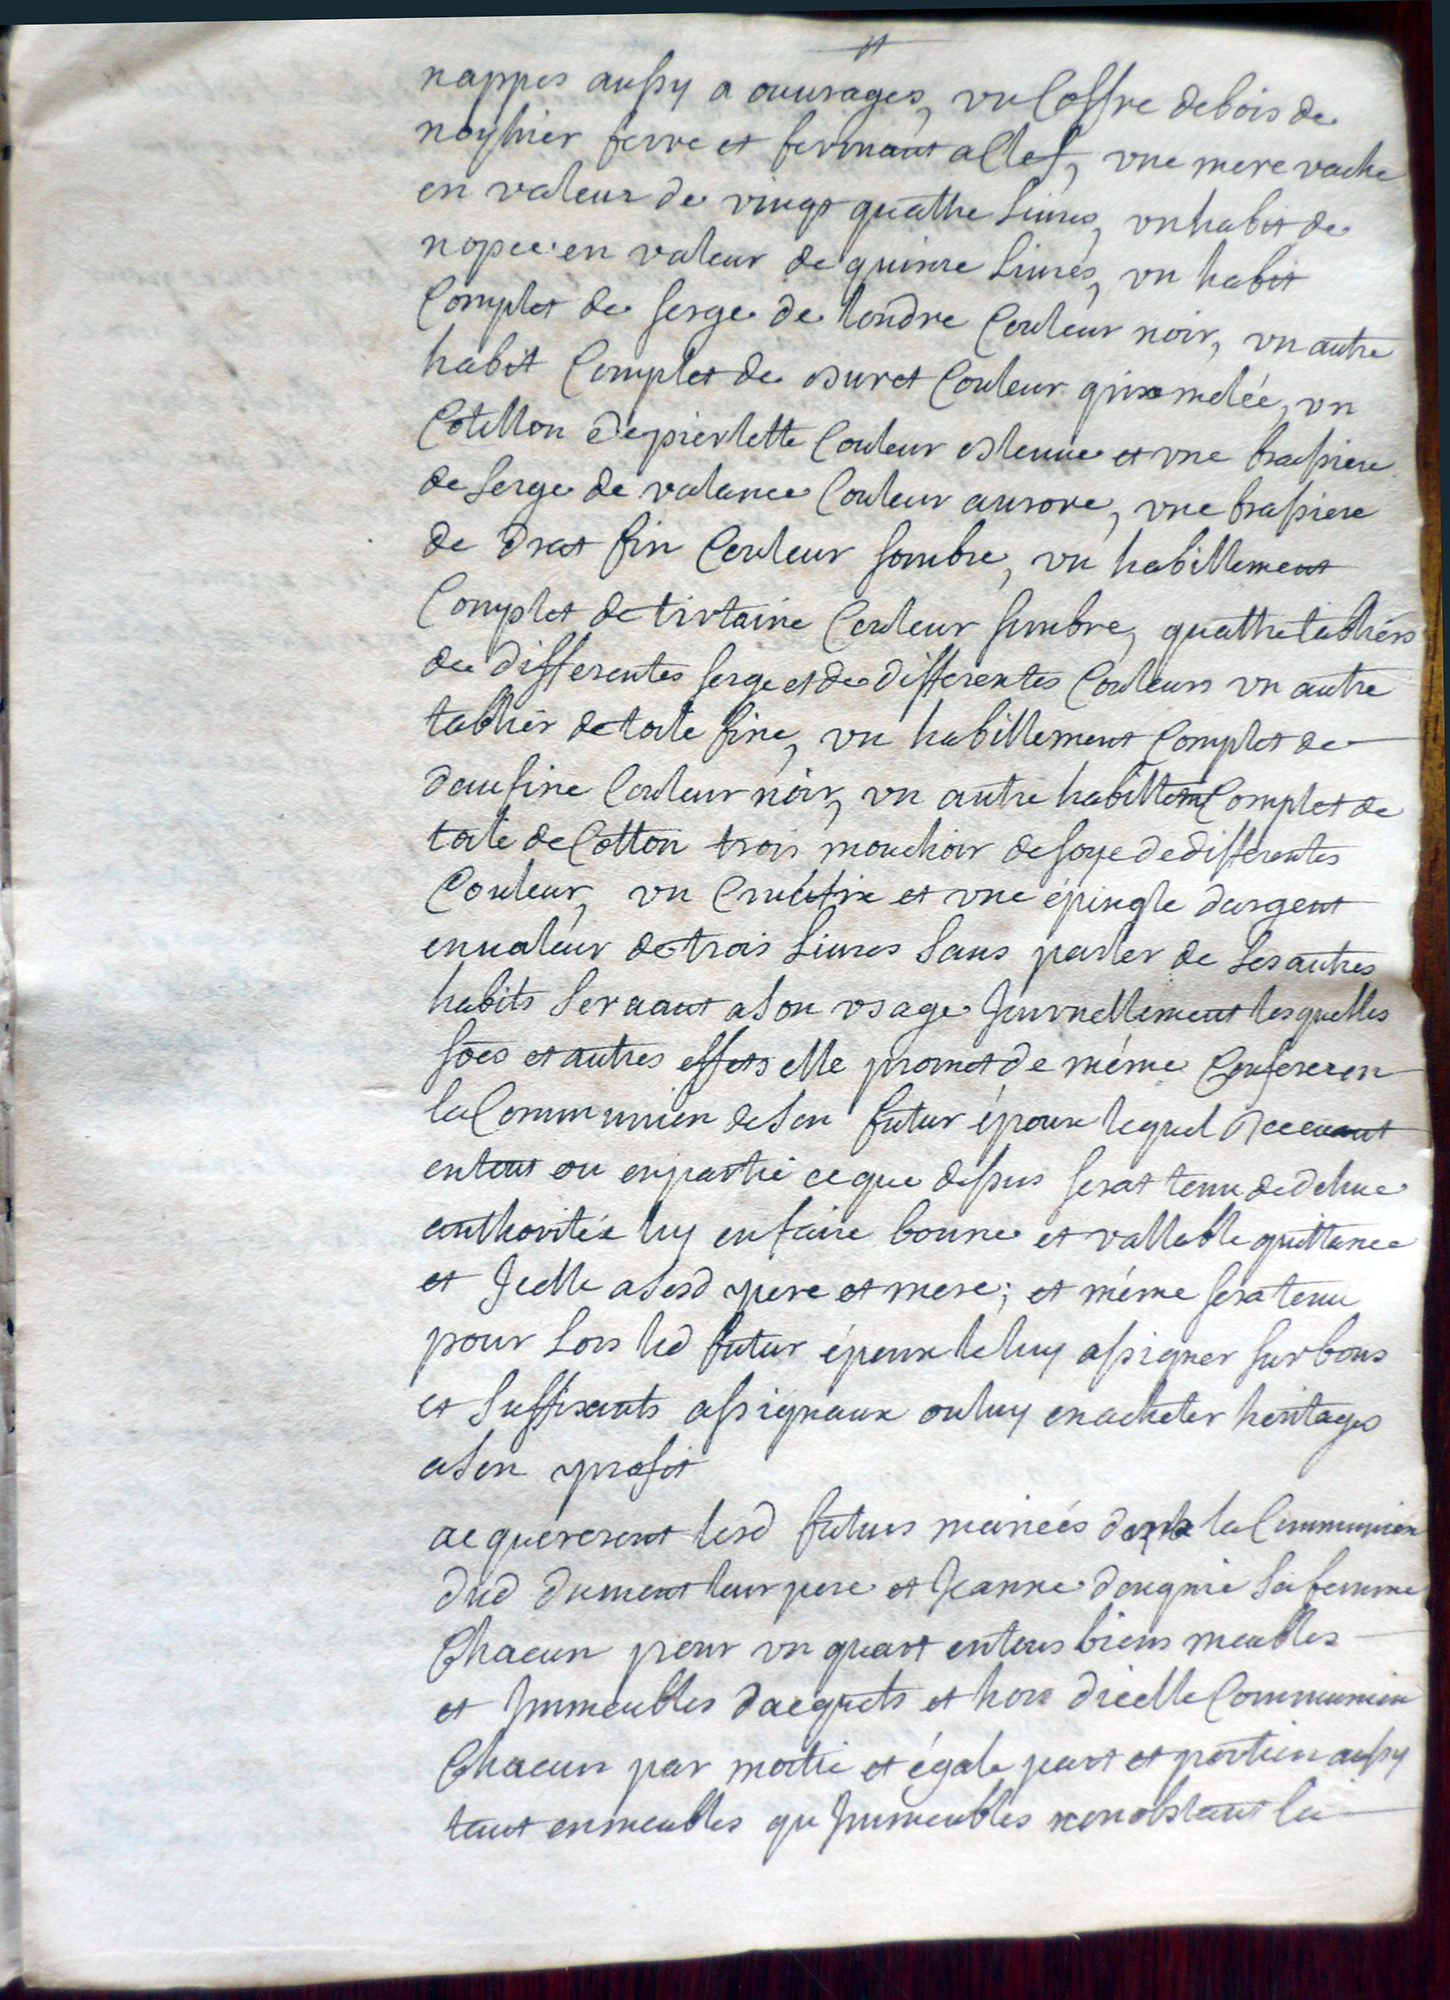 nappes aussy a ouurages, vn Coffre debois de
noyhier ferre et fermant a Clef, vne mere vache
en valeur de vingt quatthe Liures, vn habit de
nopce en valeur de quinze Liures, vn habit
Complet de serge de londre Couleur noir, vn autre
habit Complet de duret Couleur grixe melée, vn
Cotillon de pierlette Couleur bleuue et vne brassiere
de serge de valance Couleur aurore, vne brassiere
de drat fin Couleur sombre, vn habillement
Complet de tirtaine Couleur sombre, quatthe tabliérs
de differentes serge et de differentes Couleurs vn autre
tabliér de toile fine, vn habillement Complet de
daufine Couleur noir, vn autre habillemt Complet de
toile de Cotton trois mouchoir de soye de differentes
Couleur, vn Crucifix et vne épingle dargent
en valeur de trois Liures sans parler de ses autres
habits seruant a son vsage Journellement lesquelles
so͞es et autres effets elle promet de méme Conferer en
la Communion de son futur époux lequel Receuant
en tout ou en partie ce que dessus serat tenu de dehue
authoritée luy en faire bonne et vallable quittance
et Jcelle a sesd pere et mere; et méme sera tenu
pour Lors led futur époux le luy assigner sur bons
et suffixants assignaux ou luy en acheter héritages
a son profit
acquereront lesd futurs mariés dans la Communion
dud dument leur pere et Jeanne sa femme
Chacun pour vn quart en tous biens meubles
et Jmmeubles dacquets et hors dicelle Communion
Chacun par moitie et égale part et portion aussy
tant en meubles qu Jmmeubles nonobstant la